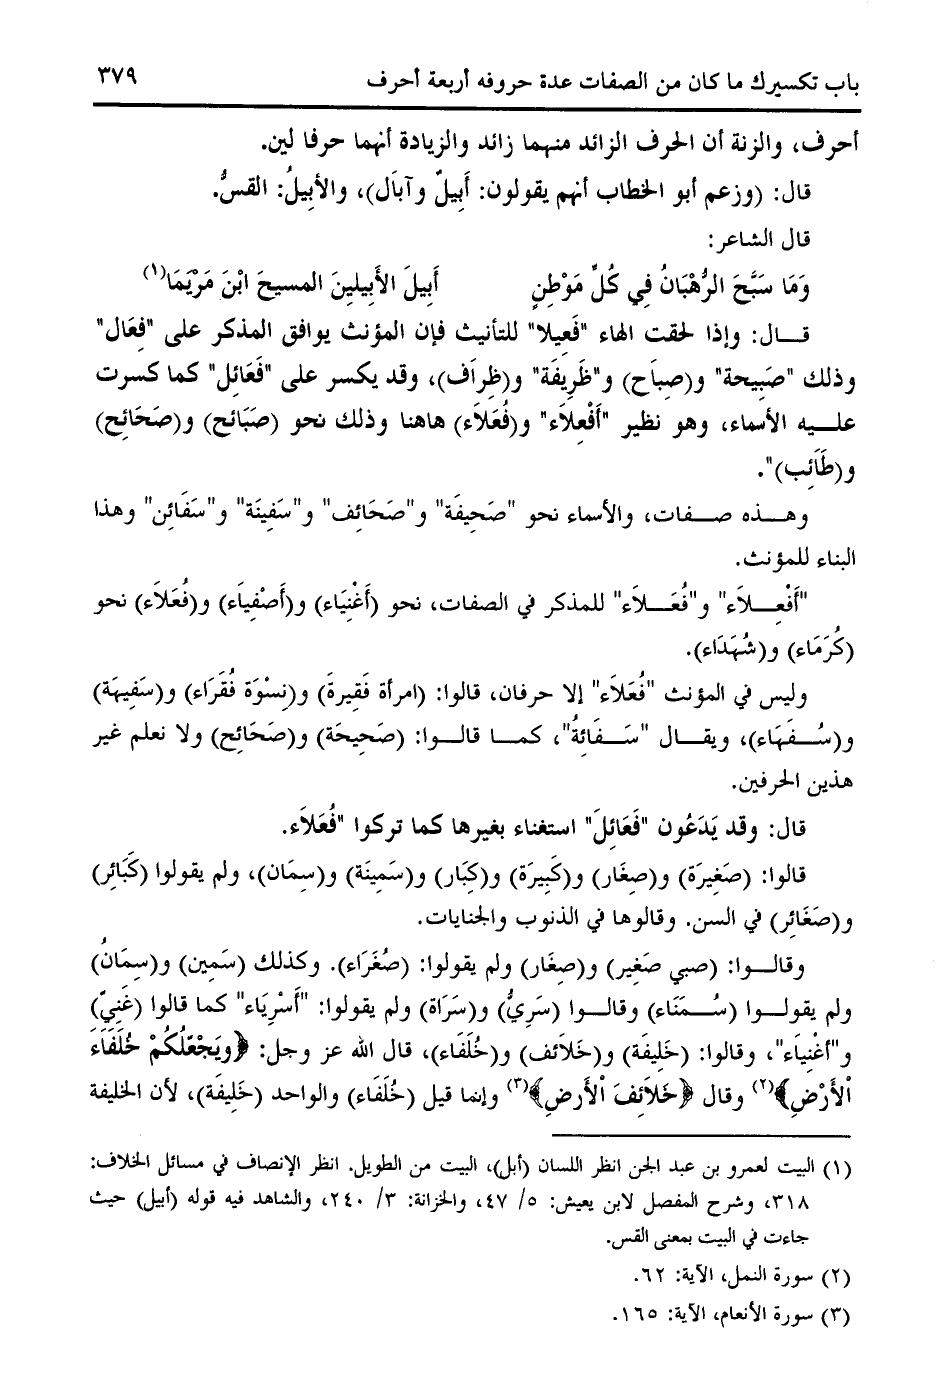 باب تكسيرك ما كان من الصفات عدة حروفه أربعة أحرف ٣٧٩
أحرف، والزنة أن الحرف الزائد منهما زائد والزيادة أنهما حرفا لين.
قال: (وزعم أبو الخطاب أنهم يقولون: أَبِيلٌ وآبَال)، والأبيلُ: القسُّ.
قال الشاعر:
وَمَا سَبَّحَ الرُّهْبَانُ فِي كُلِّ مَوْطِنٍ أَبِيلَ الأَبِيلِينَ المسيحَ ابْنَ مَرْيَمَا(١)
قـــال: وإذا لحقت الهاء "فَعِيلا" للتأنيث فإن المؤنث يوافق المذكر على "فِعَال"
وذلك "صَبِيحة" و(صِبَاح) و"ظَرِيفَة" و(ظِرَاف)، وقد يكسر على "فَعَائِل" كما كسرت
عليه الأسماء، وهو نظير "أَفْعِلاَء" و(فُعَلاَء) هاهنا وذلك نحو (صَبَائح) و(صَحَائِح)
و(طَبَائِب)".
وهذه صفات، والأسماء نحو "صَحِيفَة" و"صَحَائِف" و"سَفِينَة" و"سَفَائن" وهذا
البناء للمؤنث.
"أَفْعِلاَء" و"فُعَلاَء" للمذكر في الصفات، نحو (أَغْنِيَاء) و(أَصْفِيَاء) و(فُعَلاَء) نحو
(كُرَمَاء) و(شُهَدَاء).
وليس في المؤنث "فُعَلاَء" إلا حرفان، قالوا: (امرأة فَقِيرةَ) و(نِسْوَة فُقَرَاء) و(سَفِيهَة)
و(سُفَهَاء)، ويقال "سَفَائهُ"، كما قالوا: (صَحِيحَة) و(صَحَائِح) ولا نعلم غير
هذين الحرفين.
قال: وقد يَدَعُون "فَعَائِلَ" استغناء بغيرها كما تركوا "فُعَلاَء.
قالوا: (صَغِيرَة) و(صِغَار) و(كَبِيرَة) و(كِبَار) و(سَمِينَة) و(سِمَان)، ولم يقولوا (كَبَائِر)
و(صَغَائِر) في السن. وقالوها في الذنوب والجنايات.
وقالوا: (صبي صَغِير) و(صِغَار) ولم يقولوا: (صُغَرَاء). وكذلك (سَمِين) و(سِمَانُ)
ولم يقولوا (سُمَنَاء) وقالوا (سَرِيٌّ) و(سَرَاة) ولم يقولوا: "أَسْرِيَاء" كما قالوا (غَنِيّ)
و"أغْنِيَاء"، وقالوا: (خَلِيفَة) و(خَلاَئف) و(خُلَفَاء)، قال الله عز وجل: ﴿وَيَجْعَلُكُمْ خُلَفَاءَ
الْأَرْضِ﴾(٢) وقال ﴿خَلائِفَ الْأَرْضِ﴾(٣) وإنما قيل (خُلَفَاء) والواحد (خَلِيفَة)، لأن الخليفة
(١) البيت لعمرو بن عبد الجن انظر اللسان (أبل)، البيت من الطويل. انظر الإنصاف في مسائل الخلاف:
٣١٨، وشرح المفصل لابن يعيش: ٥/ ٤٧، والخزانة: ٣/ ٢٤٠، والشاهد فيه قوله (أبيل) حيث
جاءت في البيت بمعنى القس.
(٢) سورة النمل، الآية: ٦٢.
(٣) سورة الأنعام، الآية: ١٦٥.